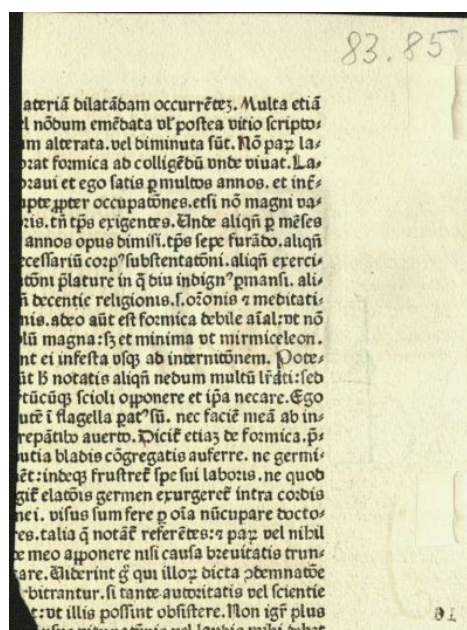 83.85
ateriā dilatādam occurrēteꝫ. Multa etiā
el nōdum emēdata vl' postea vitio scripto⸗
um alterata. vel diminuta sūt. Nō paꝝ la⸗
orat formica ad colligēdū vnde viuat. La⸗
oraui et ego satis ꝑ multos annos. et int̄⸗
upte ꝓpter occupatōnes. etsi nō magni va⸗
oris. tn̄ tp̄s exigentes. Unde aliqn̄ ꝑ mēses
annos opus dimisi. tp̄s sepe furādo. aliqn̄
ecessariū corpꝰ substentatōni. aliqn̄ exerci⸗
atōni p̄lature in q̄ diu indignꝰ ꝑmansi. ali⸗
n̄ decentie religionis. s. or̄onis ⁊ meditati⸗
nis. adeo aūt est formica debile aīal: vt nō
olū magna: sꝫ et minima vt mirmiceleon.
int ei infesta vsqꝫ ad internitōnem. Pote⸗
ūt h̄ notatis aliqn̄ nedum multū lr̄ati: sed
rtūcūqꝫ scioli oꝓponere et ip̄a necare. Ego
utē ī flagella ꝑatꝰ sū. nec faciē meā ab in⸗
repātibꝰ auerto. Dicit̄ etiaꝫ de formica. p̄⸗
utia bladis cōgregatis auferre. ne germi⸗
ēt: indeqꝫ frustret̄ spe sui laboris. ne quod
git̄ elatōis germen exurgeret̄ intra cordis
mei. visus sum fere ꝑ oīa nūcupare docto⸗
res. talia q̄ notāt̄ referētes: ⁊ paꝝ vel nihil
de meo apponere nisi causa breuitatis trun⸗
care. Uiderint g̊ qui illoꝝ dicta ꝯdemnatōe
rbitrantur. si tante autoritatis vel scientie
t: vt illis possint obsistere. Non igr̄ plus